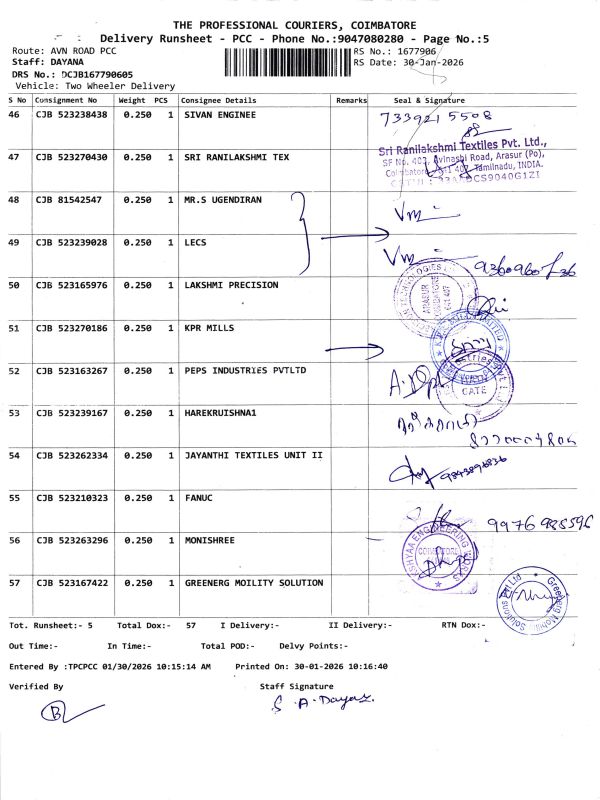 THE PROFESSIONAL COURIERS, COIMBATORE
Delivery Runsheet - PCC - Phone No.:9047080280 - Page No.:5
Route: AVN ROAD PCC
RS No.: 1677906
Staff: DAYANA
RS Date: 30-Jan-2026
DRS No.: DCJB167790605
Vehicle: Two Wheeler Delivery
S No Consignment No Weight PCS Consignee Details Remarks Seal & Signature
46 CJB 523238438 0.250 1 SIVAN ENGINEE
733921 5508
47 CJB 523270430 0.250 1 SRI RANILAKSHMI TEX
Sri Ranilakshmi Textiles Pvt. Ltd.,
Avinashi Road, Arasur (Po),
Tamilnadu, INDIA.
48 CJB 81542547 1 MR.S UGENDIRAN
49 CJB 523239028 0.250 1 LECS
50 CJB 523165976 0.250 1 LAKSHMI PRECISION
51 CJB 523270186 0.250 1 KPR MILLS
52 CJB 523163267 0.250 1 PEPS INDUSTRIES PVTLTD
GATE
53 CJB 523239167 0.250 1 HAREKRUISHNA1
54 CJB 523262334 0.250 1 JAYANTHI TEXTILES UNIT II
9843896836
55 CJB 523210323 0.250 1 FANUC
9976 988596
56 CJB 523263296 0.250 1 MONISHREE
ENGINEERING WORKS
COIMBATORE
57 CJB 523167422 0.250 1 GREENERG MOILITY SOLUTION
Greenerg Mobility Solutions Pvt Ltd
Tot. Runsheet:- 5 Total Dox:- 57 I Delivery:- II Delivery:- RTN Dox:-
Out Time:- In Time:- Total POD:- Delvy Points:-
Entered By :TPCPCC 01/30/2026 10:15:14 AM Printed On: 30-01-2026 10:16:40
Verified By Staff Signature